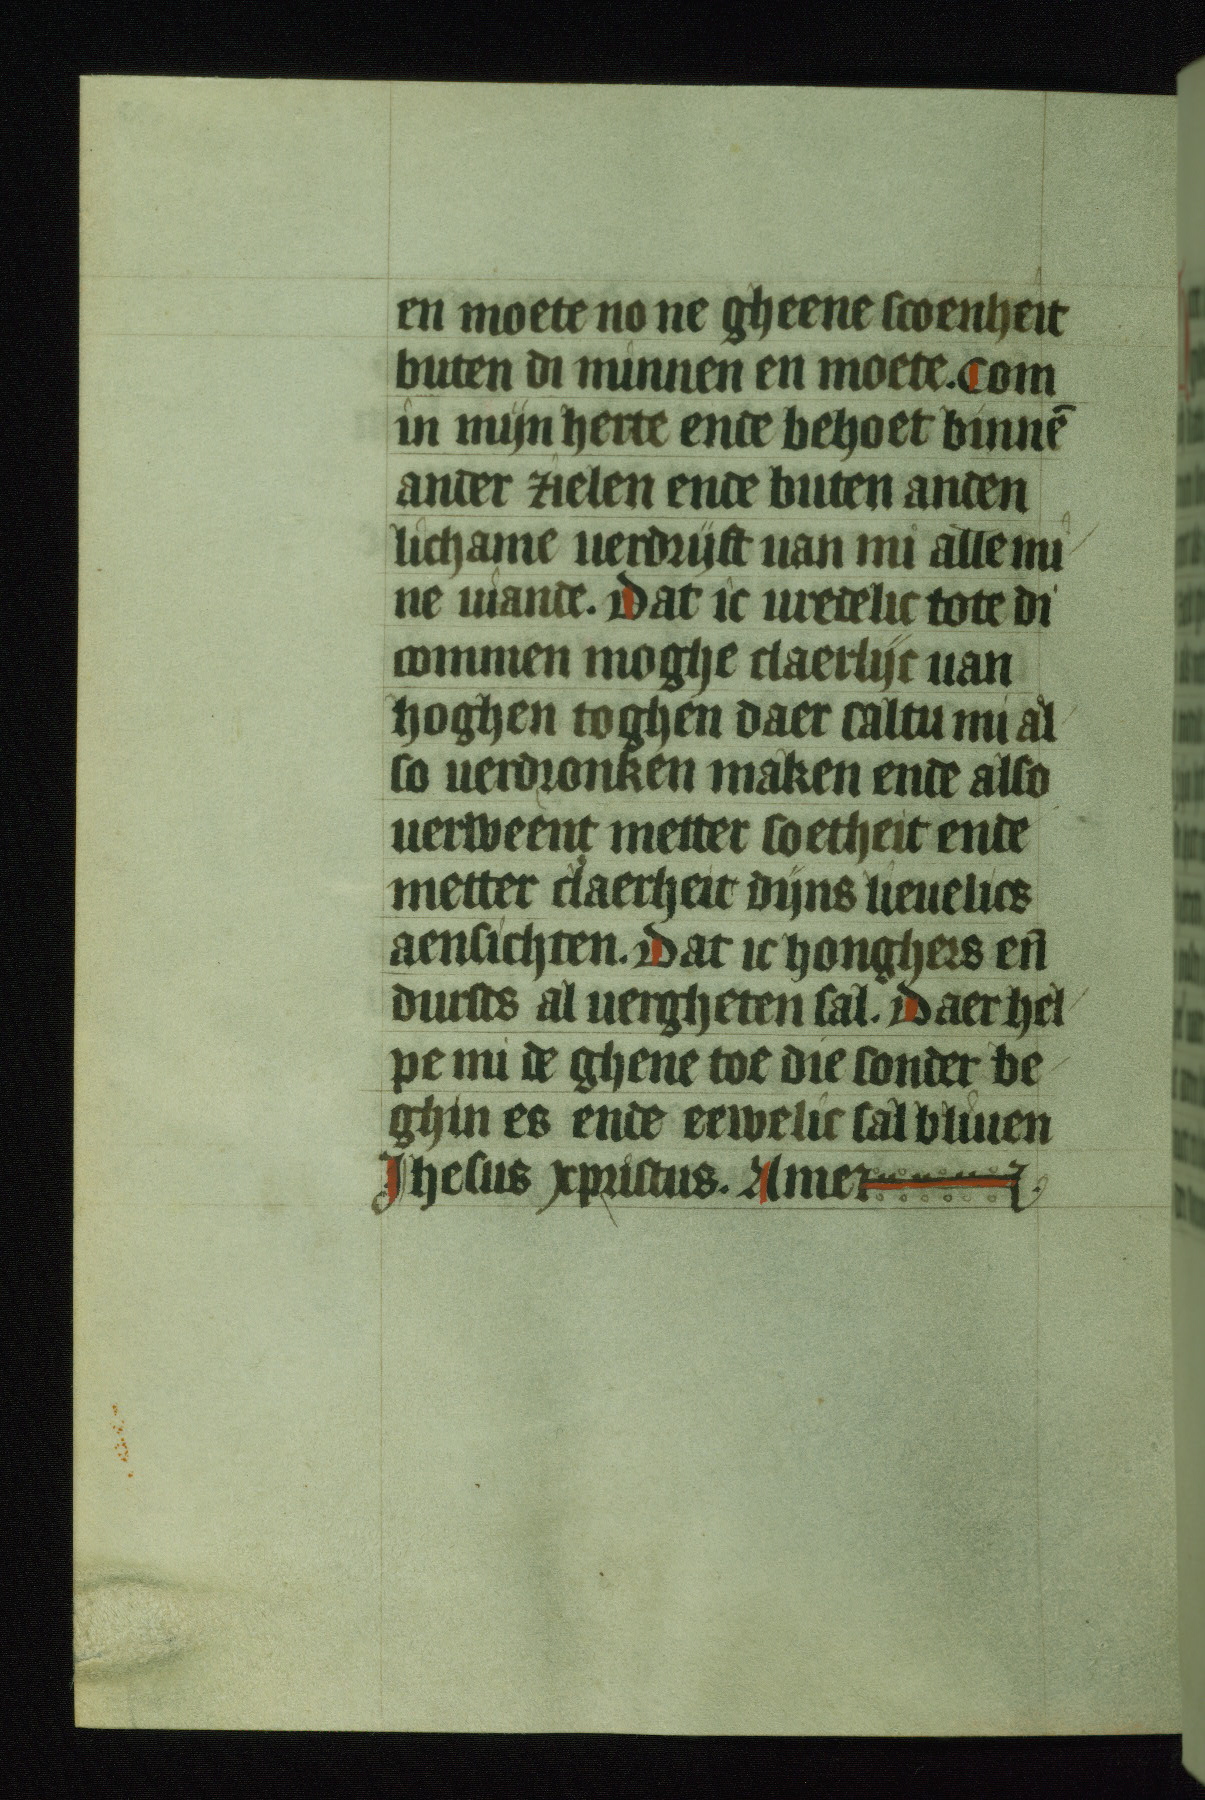 en moete no ne gheene scoenheit
buten di minnen en moete. Com
in mijn herte ende behoet binnē
ander zielen ende buten anden
lichame uerdrijft uan mi alle mi
ne uiande. Dat ic uredelic tote di
commen moghe claerlijc uan
hoghen toghen daer saltu mi al
so uerdronken maken ende also
uerweent metter soetheit ende
metter claerheit dijns lieuelics
aensichten. Dat ic honghers eñ
dursts al uergheten sal. Daer hel
pe mi de ghene toe die sonder be
ghin es ende eewelic sal bliuen
Jhesus xpristus. Amen.